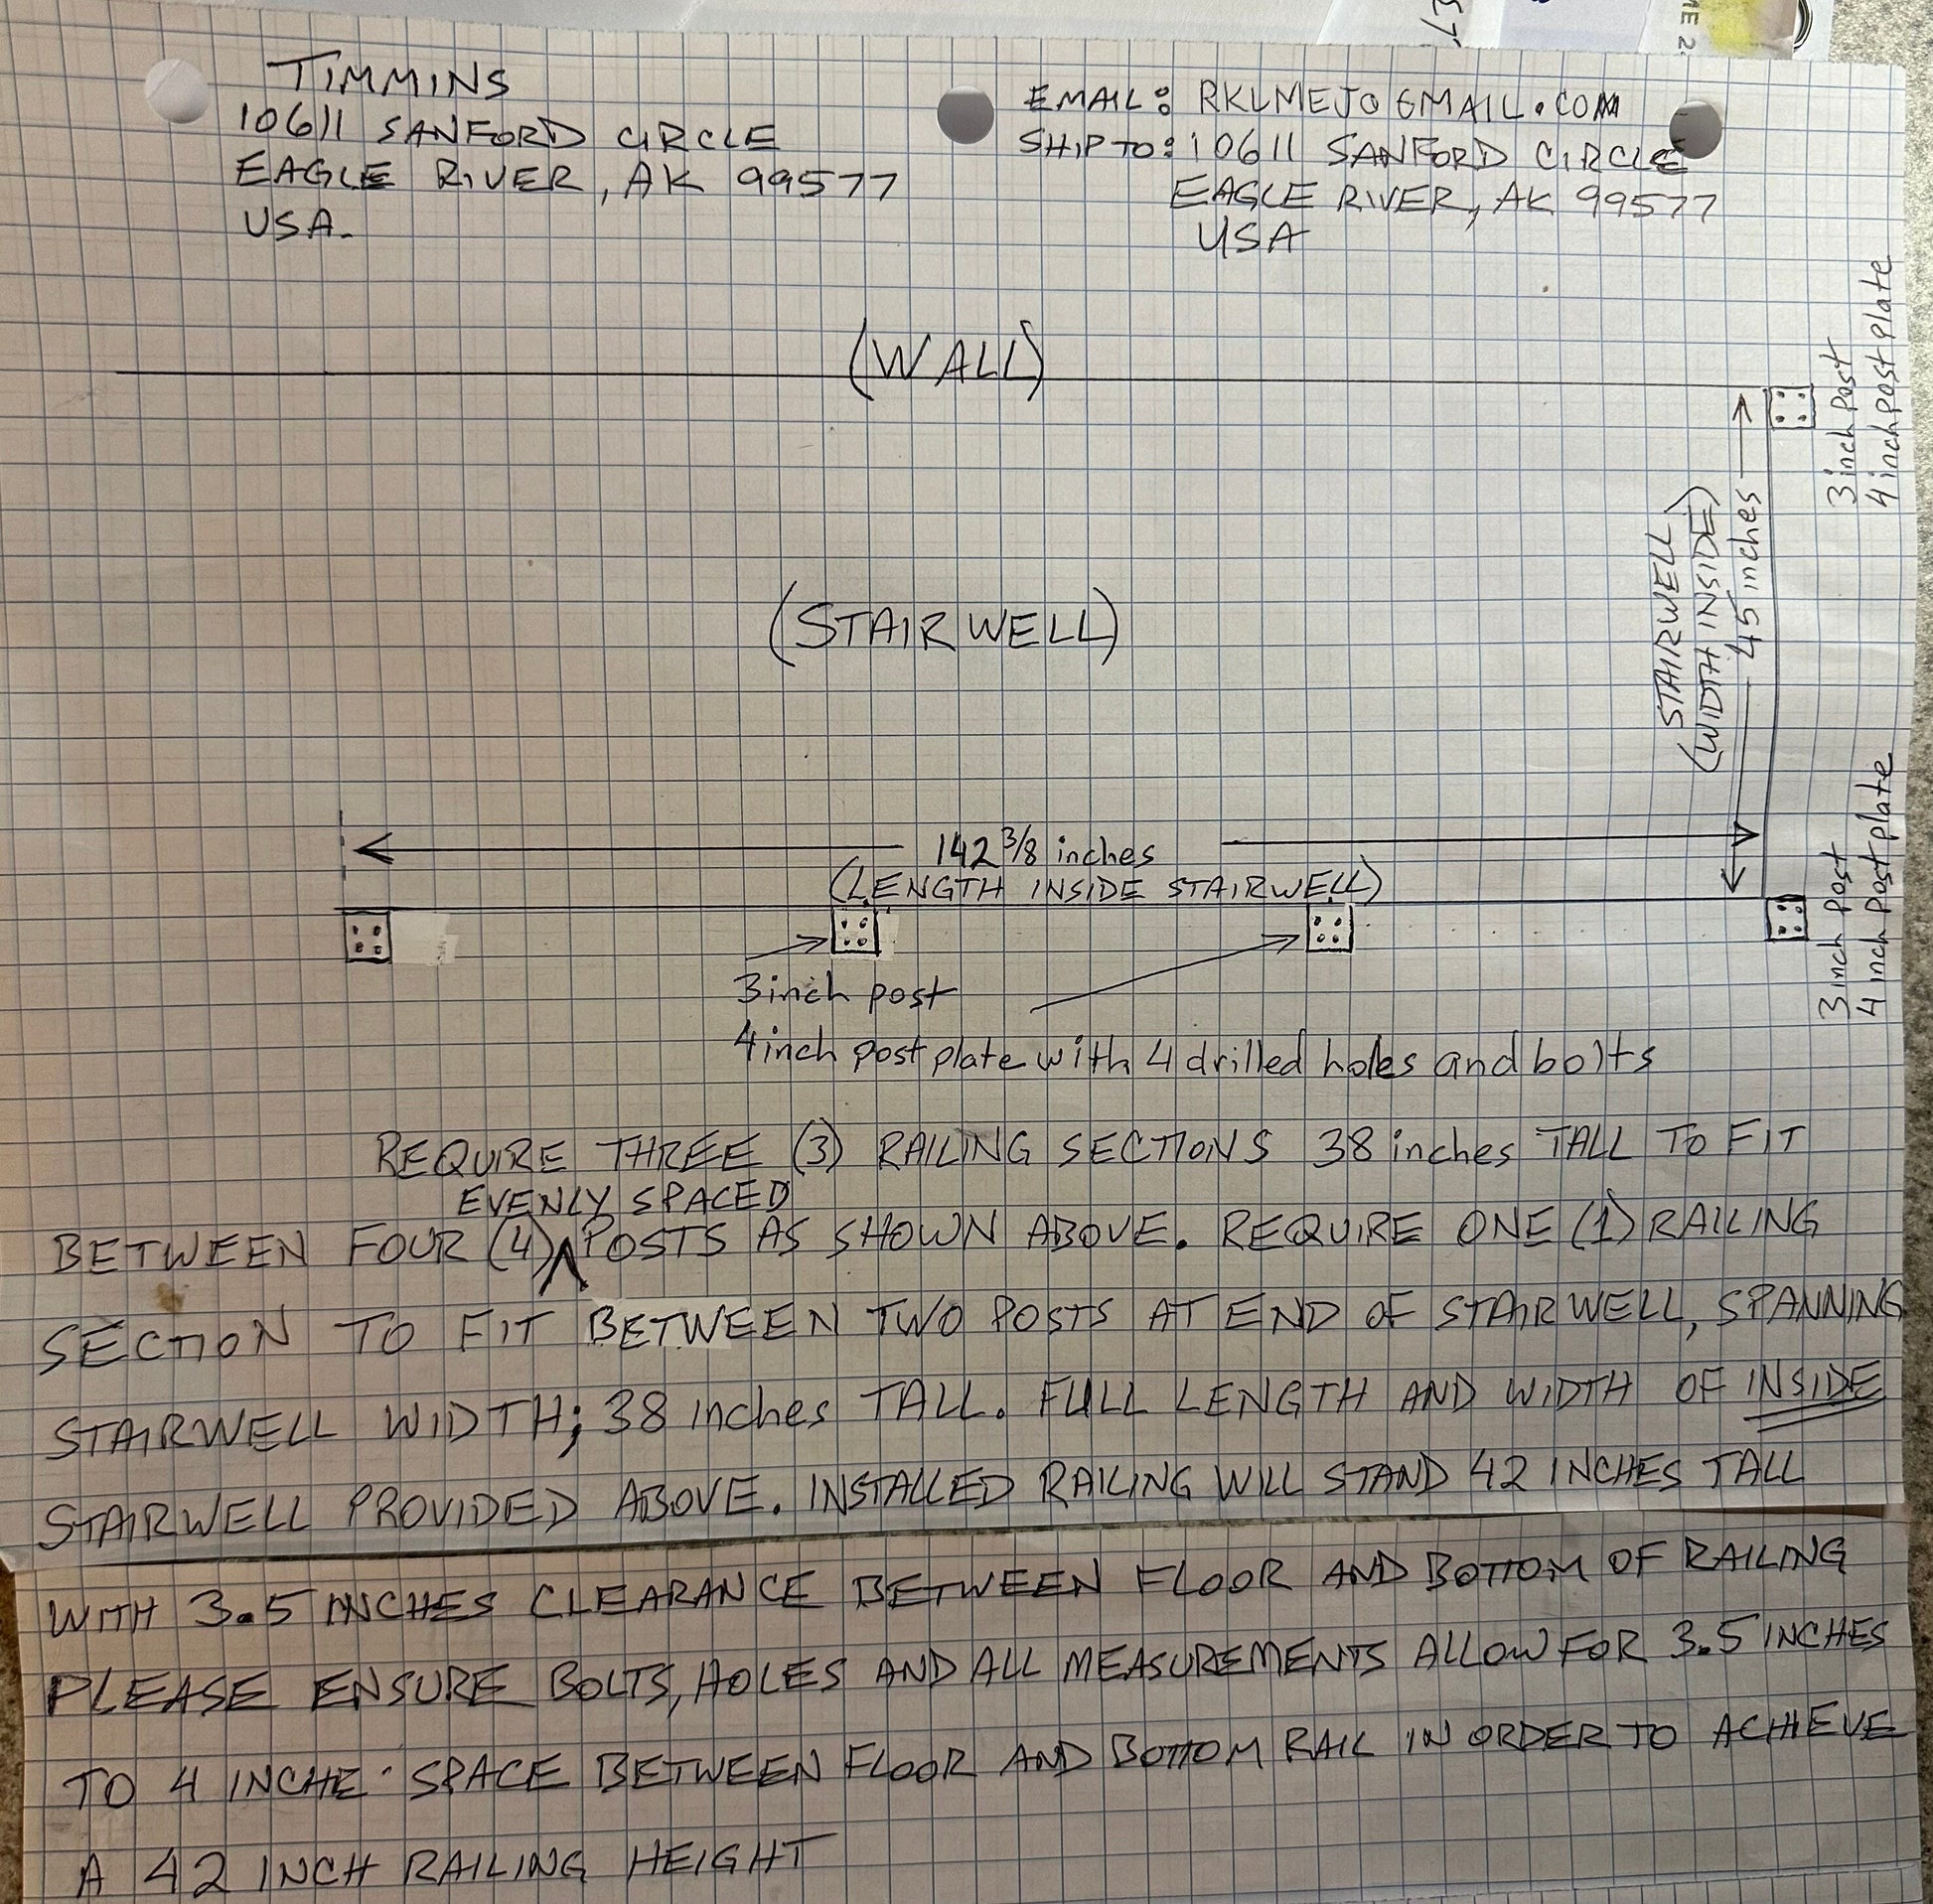 TIMMINS
10611 SANFORD CIRCLE
EAGLE RIVER, AK 99577
USA.
EMAIL: RKLMEJO GMAIL.COM
SHIP TO: 10611 SANFORD CIRCLE
EAGLE RIVER, AK 99577
USA
(WALL)
3 inch Post
4 inch post plate
STAIRWELL
(WIDTH INSIDE)
45 inches
(STAIRWELL)
142 3/8 inches
(LENGTH INSIDE STAIRWELL)
3 inch post
4 inch post plate
3 inch post
4 inch post plate with 4 drilled holes and bolts
REQUIRE THREE (3) RAILING SECTIONS 38 inches TALL TO FIT
EVENLY SPACED
BETWEEN FOUR (4) POSTS AS SHOWN ABOVE. REQUIRE ONE (1) RAILING
SECTION TO FIT BETWEEN TWO POSTS AT END OF STAIRWELL, SPANNING
STAIRWELL WIDTH; 38 inches TALL. FULL LENGTH AND WIDTH OF INSIDE
STAIRWELL PROVIDED ABOVE. INSTALLED RAILING WILL STAND 42 INCHES TALL
WITH 3.5 INCHES CLEARANCE BETWEEN FLOOR AND BOTTOM OF RAILING
PLEASE ENSURE BOLTS, HOLES AND ALL MEASUREMENTS ALLOW FOR 3.5 INCHES
TO 4 INCHE SPACE BETWEEN FLOOR AND BOTTOM RAIL IN ORDER TO ACHIEVE
A 42 INCH RAILING HEIGHT